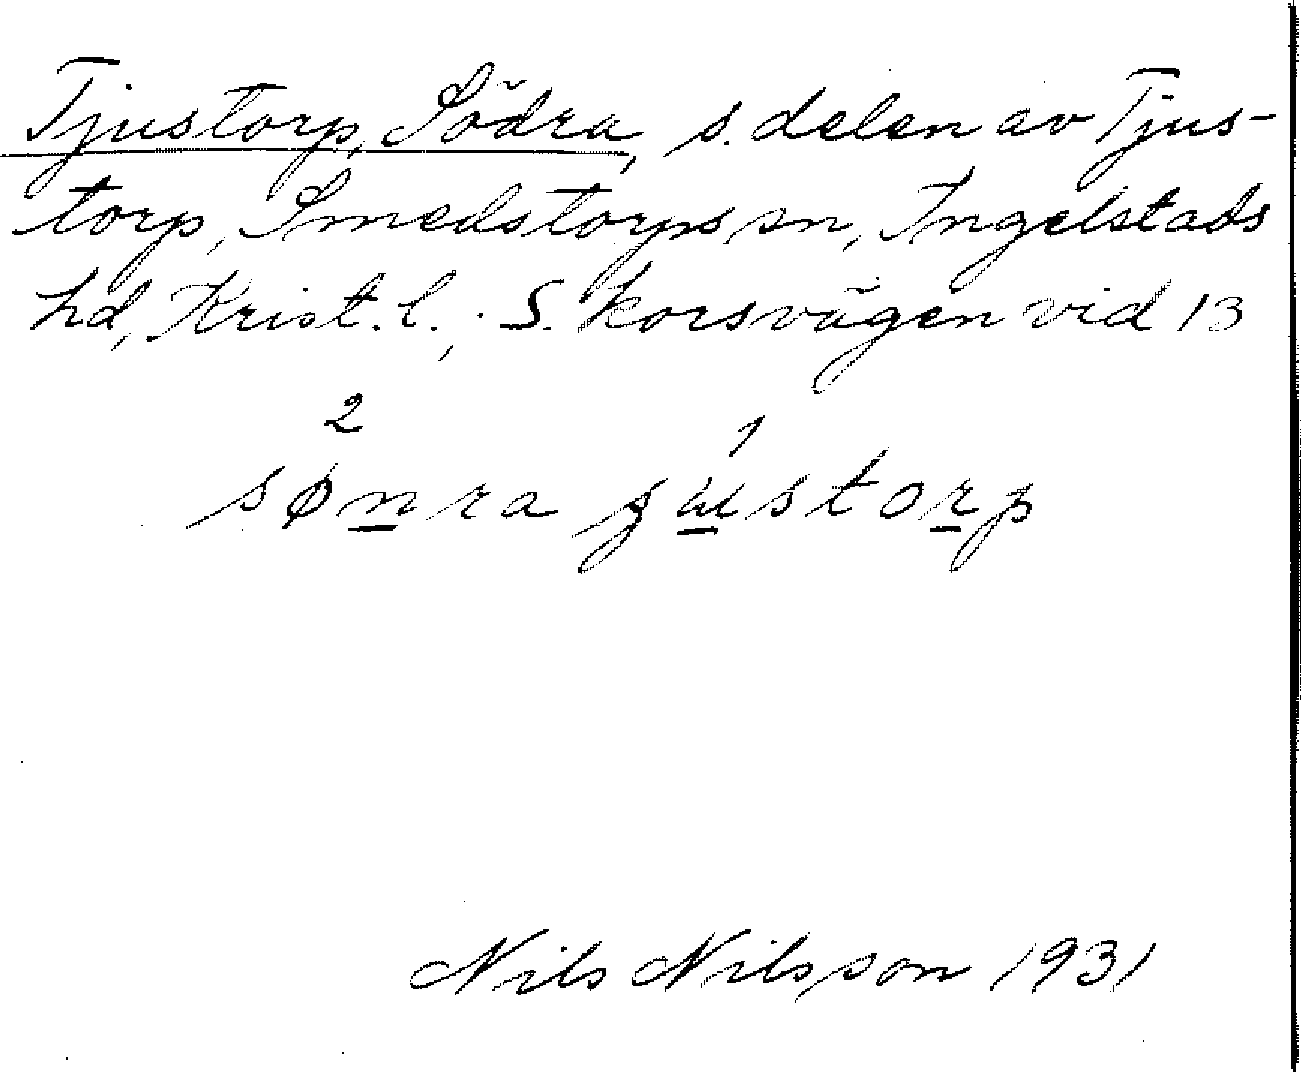 Tjustorp, Södra, s. delen av Tjus-
torp, Smedstorps sn, Ingelstads
hd, Krist. l.; S. korsvägen vid 13
2 1
sønra ɟustorp
Nils Nilsson 1931